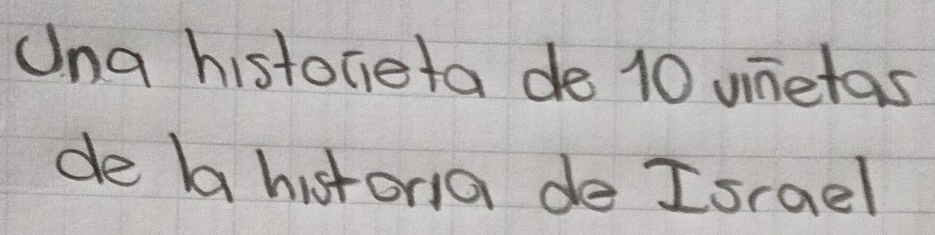 Una historieta de 10 viñetas
de la historia de Israel